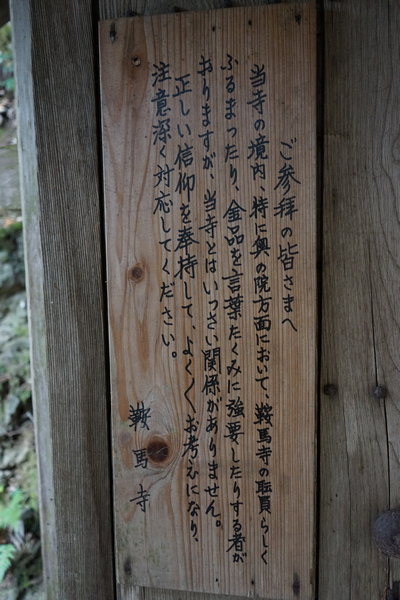 ご参拝の皆さまへ
当寺の境内、特に奥の院方面において、鞍馬寺の職員らしく
ふるまったり、金品を言葉たくみに強要したりする者が
おりますが、当寺とはいっさい関係がありません。
正しい信仰を奉持して、よく〱お考えになり、
注意深く対応してください。
鞍馬寺